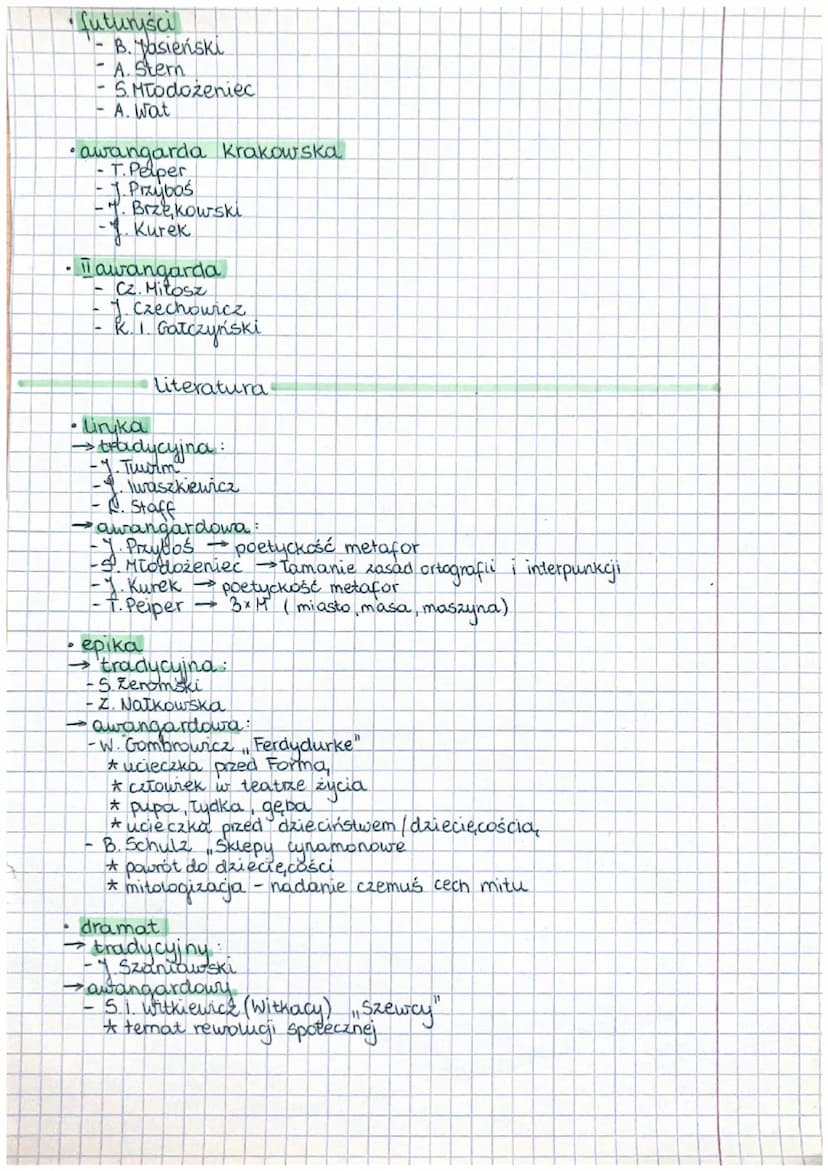 • futuryści
- B. Jasieński
- A. Stern
- S. Młodożeniec
- A. Wat
• awangarda Krakowska
- T. Peiper
- J. Przyboś
- J. Brzękowski
- J. Kurek
• II awangarda
- Cz. Miłosz
- J. Czechowicz
- K. I. Gałczyński
Literatura
• liryka
→ tradycyjna:
- J. Tuwim
- J. Iwaszkiewicz
- L. Staff
→ awangardowa:
- J. Przyboś → poetyckość metafor
- S. Młodożeniec → łamanie zasad ortografii i interpunkcji
- J. Kurek → poetyckość metafor
- T. Peiper → 3×M (miasto, masa, maszyna)
• epika
→ tradycyjna:
- S. Żeromski
- Z. Nałkowska
→ awangardowa:
- W. Gombrowicz „Ferdydurke"
* ucieczka przed Formą
* człowiek w teatrze życia
* pupa, łydka, gęba
* ucieczka przed dzieciństwem/dziecięcością
- B. Schulz „Sklepy cynamonowe
* powrót do dziecięcości
* mitologizacja - nadanie czemuś cech mitu
• dramat
→ tradycyjny:
- J. Szaniawski
→ awangardowy
- S. I. Witkiewicz (Witkacy) „Szewcy"
* temat rewolucji społecznej